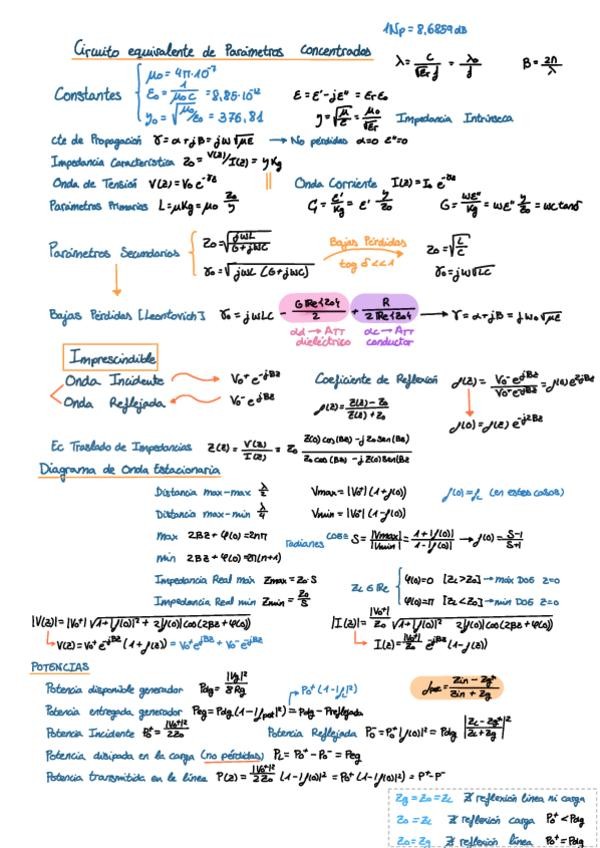 1Np = 8,6859 dB
Circuito equivalente de Parámetros Concentrados
λ = c/(√εr f) = λ0/f   B = 2π/λ
Constantes { μ0 = 4π·10^-7
ε0 = 1/(μ0 c) = 8,85·10^-12   ε = ε' - jε'' = εr ε0
η0 = √(μ0/ε0) = 376,81   η = √(μ/ε) = μ0/√εr   Impedancia Intrínseca
cte de Propagación γ = α + jB = jω√με → No pérdidas α=0 ε''=0
Impedancia Característica Z0 = V(z)/I(z) = η Kg
Onda de Tensión V(z) = V0 e^-γz   Onda Corriente I(z) = I0 e^-γz
Parámetros Primarios L = μKg = μ0 Z0/η   C = ε'/Kg = ε' η/Z0   G = ωε''/Kg = ωε'' η/Z0 = ωC tanδ
Parámetros Secundarios { Z0 = √(jωL/(G+jωC))   Bajas Pérdidas tag δ<<1   Z0 = √(L/C)
γ0 = √(jωL (G+jωC))   γ0 = jω√LC
Bajas Pérdidas [Leontovich] γ0 = jωLC - G Re{Z0}/2 + R/(2 Re{Z0}) → γ = α + jB = jω0√με
αd → ATT dieléctrico   αc → ATT conductor
Imprescindible
Onda Incidente V0+ e^-jBz   Coeficiente de Reflexión ρ(z) = V0- e^jBz / V0+ e^-jBz = ρ(0) e^2jBz
Onda Reflejada V0- e^jBz   ρ(z) = (Z(z) - Z0)/(Z(z) + Z0)   ρ(0) = ρ(z) e^-j2Bz
Ec Traslado de Impedancias Z(z) = V(z)/I(z) = Z0 (Z(0) cos(Bz) - j Z0 sen(Bz))/(Z0 cos(Bz) - j Z(0) sen(Bz))
Diagrama de Onda Estacionaria
Distancia max-max λ/2   Vmax = |V0+| (1+ρ(0))   ρ(0) = ρL (en estos casos)
Distancia max-min λ/4   Vmin = |V0+| (1-ρ(0))
max 2Bz + φ(0) = 2nπ   radianes   COE = S = |Vmax|/|Vmin| = (1+|ρ(0)|)/(1-|ρ(0)|) → ρ(0) = (S-1)/(S+1)
min 2Bz + φ(0) = 2π(n+1)
Impedancia Real max Zmax = Z0·S   ZL ∈ Re { φ(0)=0 [ZL>Z0] → max DOE z=0
Impedancia Real min Zmin = Z0/S   φ(0)=π [ZL<Z0] → min DOE z=0
|V(z)| = |V0+| √(1+|ρ(0)|² + 2|ρ(0)| cos(2Bz+φ(0)))   |I(z)| = |V0+|/Z0 √(1+|ρ(0)|² 2|ρ(0)| cos(2Bz+φ(0)))
V(z) = V0+ e^-jBz (1+ρ(z)) = V0+ e^jBz + V0- e^jBz   I(z) = |V0+|/Z0 e^-jBz (1-ρ(z))
POTENCIAS
Potencia disponible generador Pdg = |Vg|²/8Rg   ρpot = (Zin - Zg*)/(Zin + Zg)
Potencia entregada generador Peg = Pdg (1-|ρpot|²) = Pdg - Preflejada   P0+ (1-|ρL|²)
Potencia Incidente P0+ = |V0+|²/2Z0   Potencia Reflejada P0- = P0+ |ρ(0)|² = Pdg |(ZL - Zg*)/(ZL + Zg)|²
Potencia disipada en la carga (no pérdidas) PL = P0+ - P0- = Peg
Potencia transmitida en la línea P(z) = |V0+|²/2Z0 (1-|ρ(0)|²) = P0+ (1-|ρ(0)|²) = P+ - P-
Zg = Z0 = ZL   ∄ reflexión línea ni carga
Z0 = ZL   ∄ reflexión carga   P0+ < Pdg
Z0 = Zg   ∄ reflexión línea   P0+ = Pdg